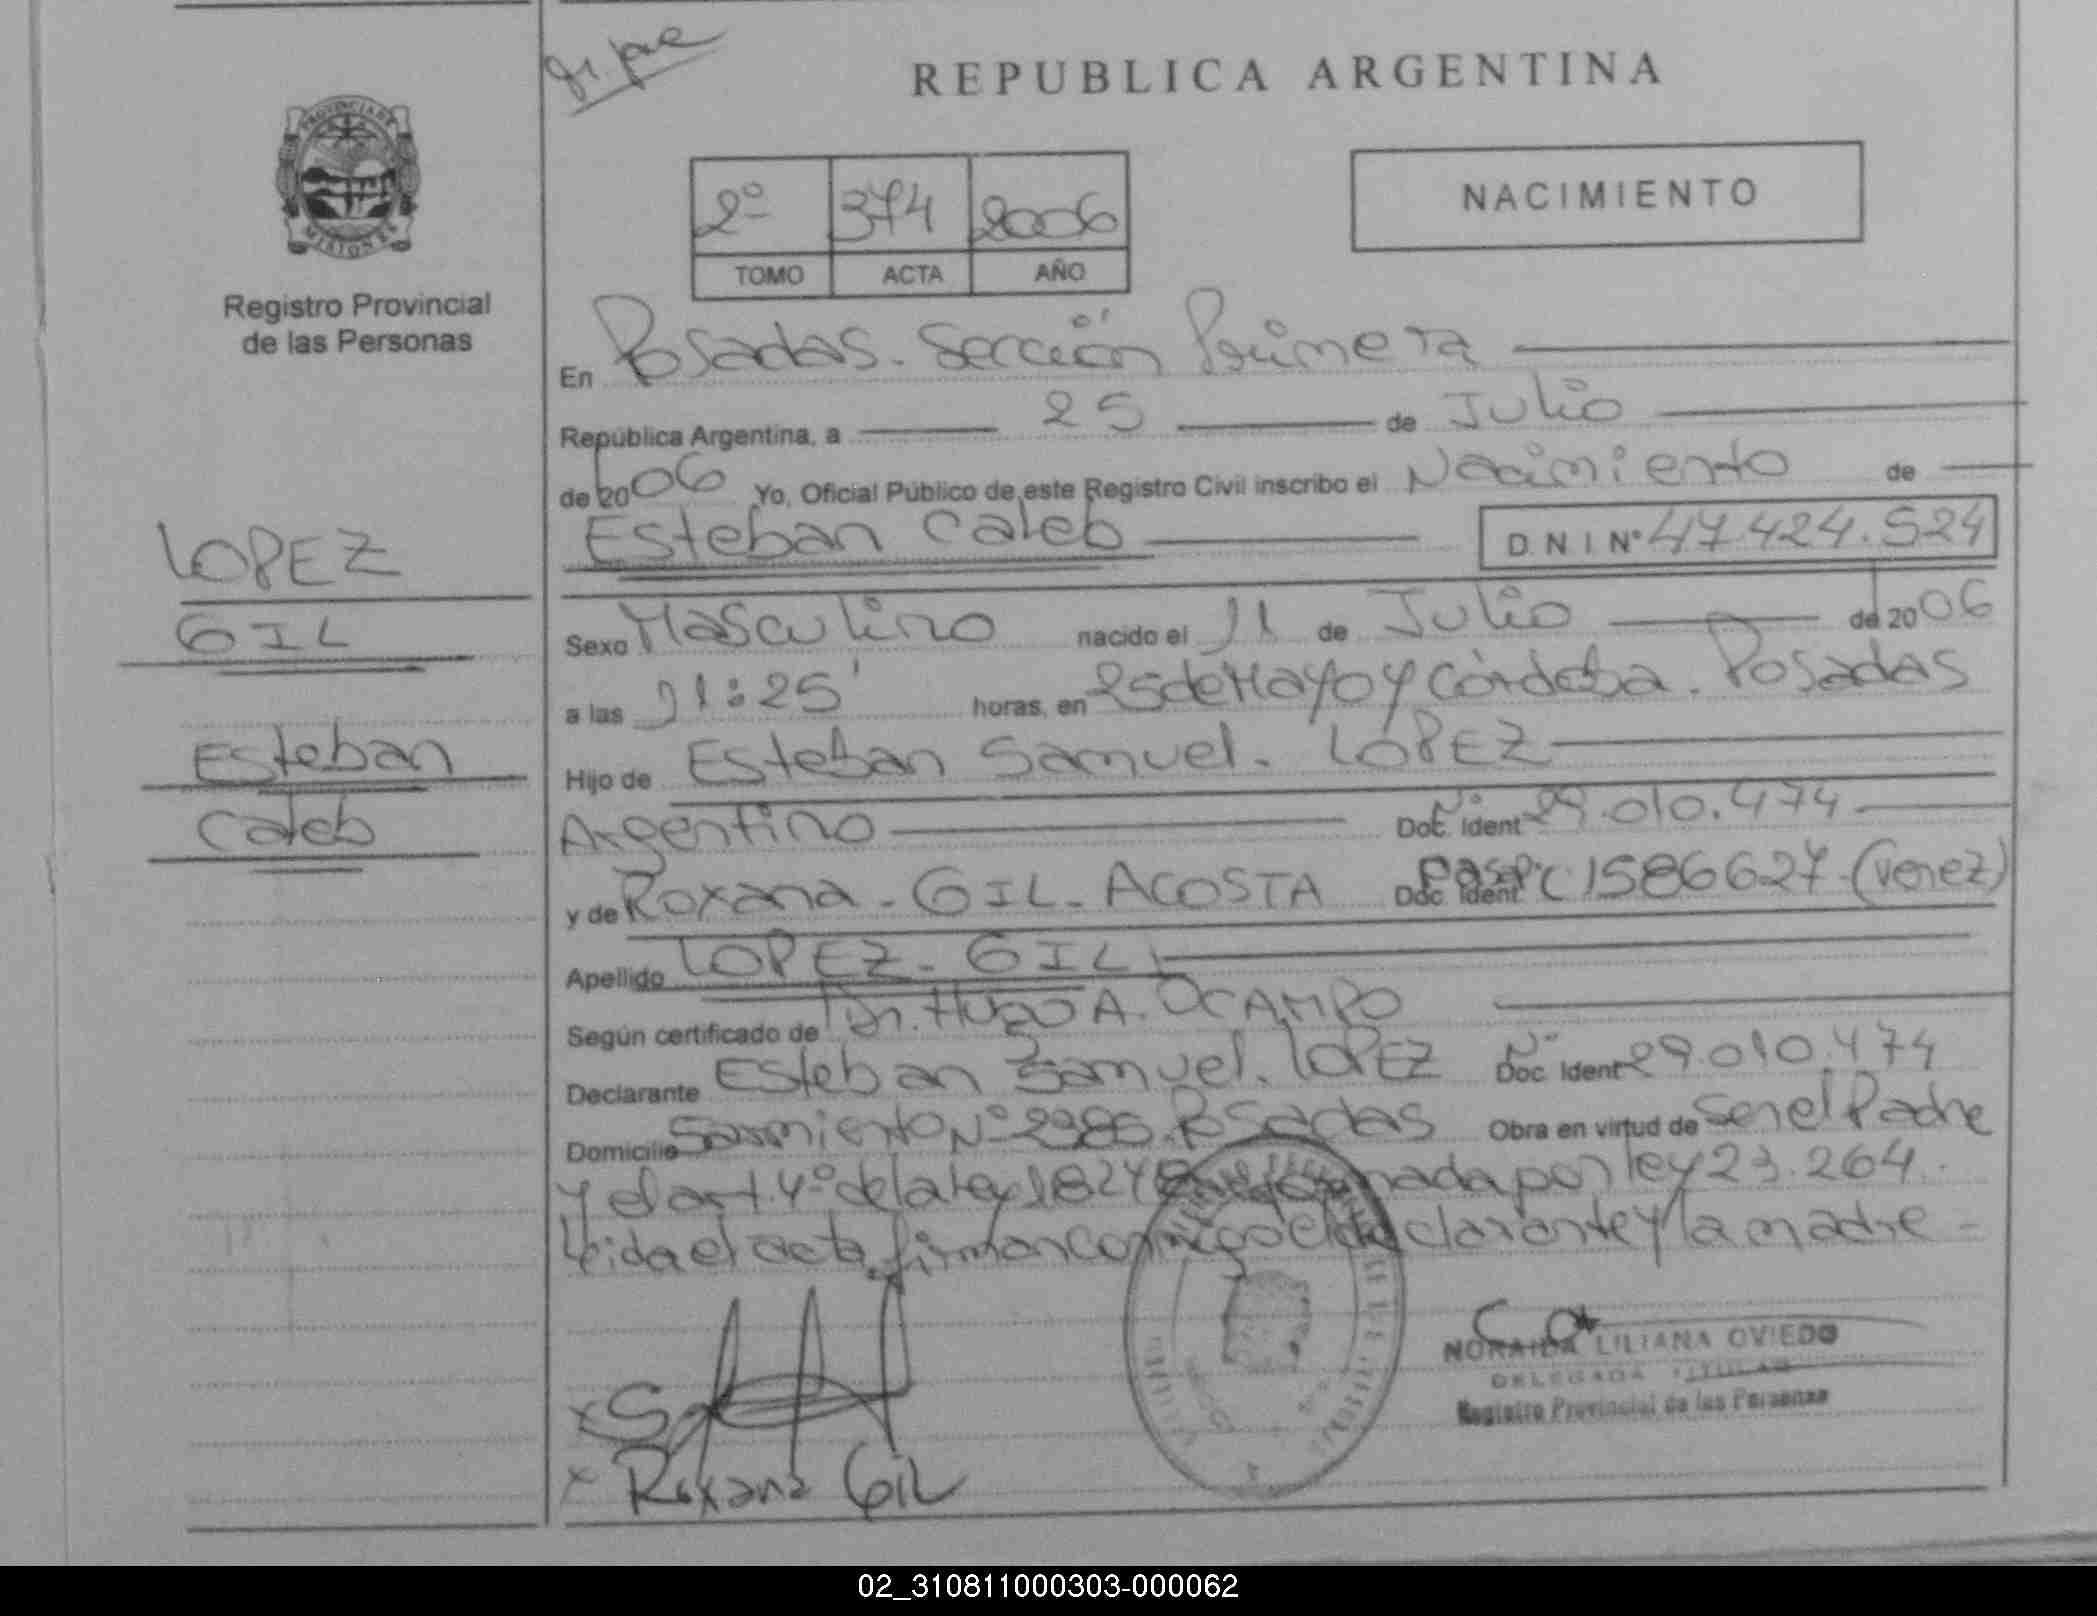 REPUBLICA ARGENTINA
PROVINCIA DE
MISIONES
Registro Provincial
de las Personas
2º 374 2006
TOMO ACTA AÑO
NACIMIENTO
En Posadas. Sección Primera
República Argentina, a 25 de Julio
de 2006 Yo, Oficial Público de este Registro Civil inscribo el Nacimiento de
Esteban Caleb D N I Nº 47.424.524
LOPEZ
GIL
Esteban
Caleb
Sexo Masculino nacido el 11 de Julio de 2006
a las 11:25' horas, en 25 de Mayo y Córdoba. Posadas
Hijo de Esteban Samuel. LOPEZ
Argentino Doc. Ident Nº 29.010.474
y de Roxana - GIL - ACOSTA Doc. Ident Pasp. C1586627 (Venez)
Apellido LOPEZ - GIL
Según certificado de Dr. Hugo A. OCAMPO
Declarante Esteban Samuel. LOPEZ Doc. Ident Nº 29.010.474
Domicilio Sarmiento Nº Posadas Obra en virtud de Ser el Padre
y el art. 4º de la ley 18248 por ley 23.264.
Leida el acta, firman conmigo el declarante y la madre -
x
x Roxana Gil
NORAIDA LILIANA OVIEDO
DELEGADA TITULAR
Registro Provincial de las Personas
02_310811000303-000062